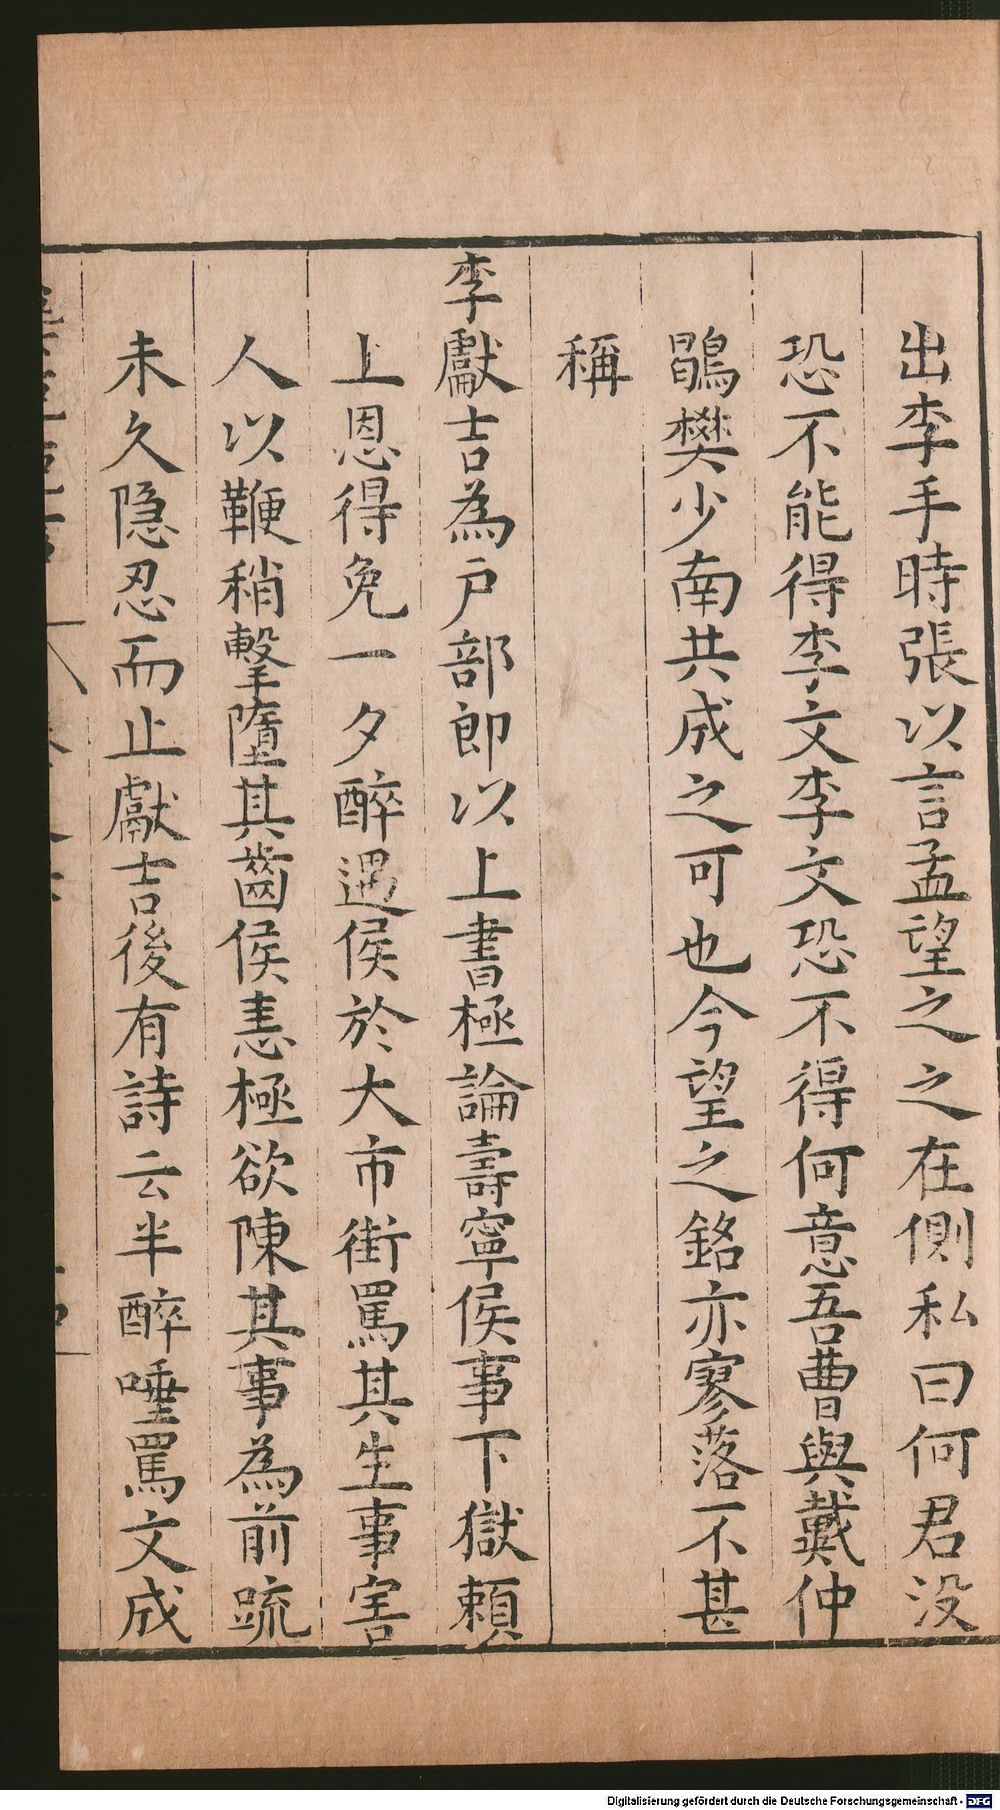 出李手時張以言孟望之之在側私曰何君没
恐不能得李文李文恐不得何意吾曹與戴仲
鶡樊少南共成之可也今望之銘亦寥落不甚
稱
李獻吉為户部郎以上書極論壽寧侯事下獄頼
上恩得免一夕醉遇侯於大市街罵其生事害
人以鞭稍擊墮其齒侯恚極欲陳其事為前疏
未久隐忍而止獻吉後有詩云半醉唾罵文成
Digitalisierung gefördert durch die Deutsche Forschungsgemeinschaft - DFG